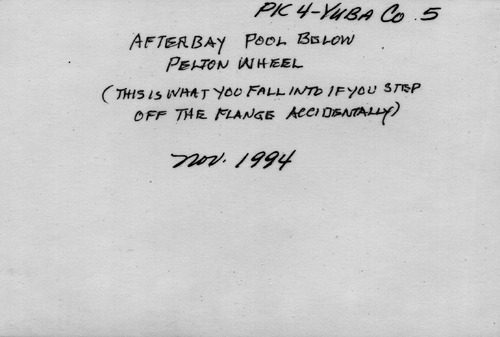 PK 4-YUBA CO. 5
AFTERBAY POOL BELOW
PELTON WHEEL
(THIS IS WHAT YOU FALL INTO IF YOU STEP
OFF THE FLANGE ACCIDENTALLY)
NOV. 1994